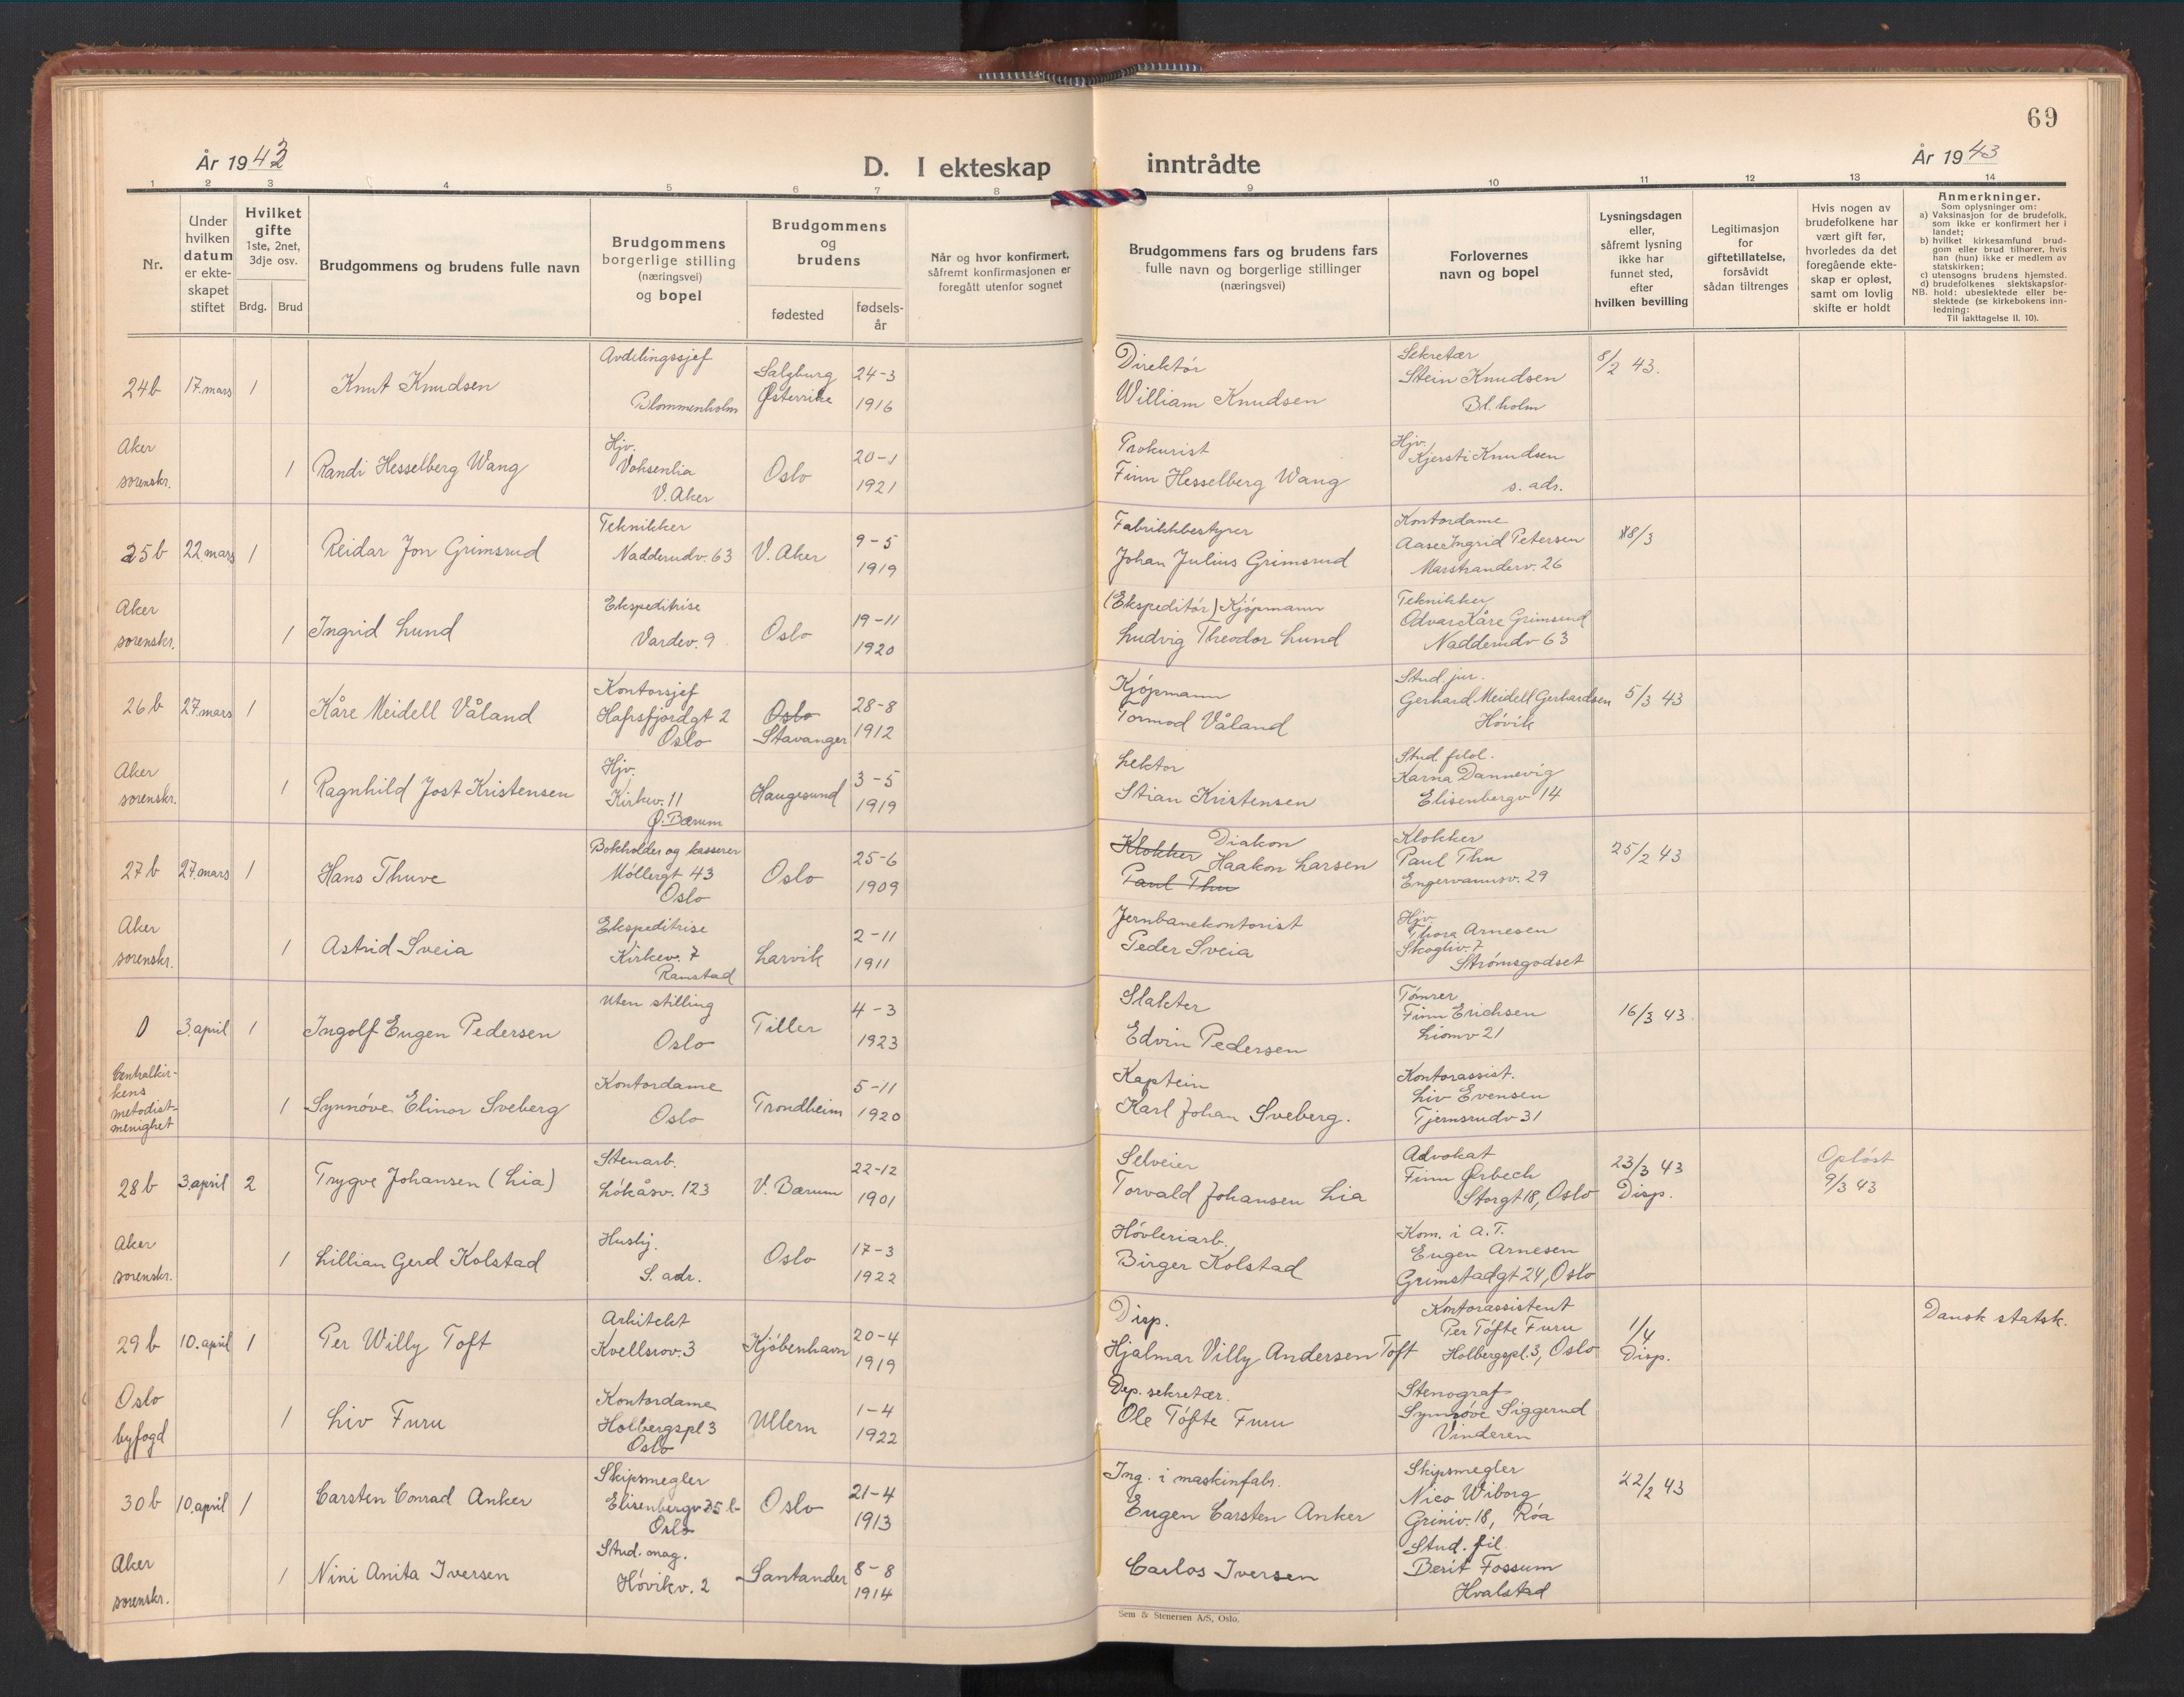 69
År 1943
D. I ekteskap inntrådte
År 1943
1 2 3 4 5 6 7 8 9 10 11 12 13 14
Nr.
Under hvilken datum er ekteskapet stiftet
Hvilket gifte 1ste, 2net, 3dje osv.
Brdg.
Brud
Brudgommens og brudens fulle navn
Brudgommens borgerlige stilling (næringsvei) og bopel
Brudgommens og brudens
fødested
fødselsår
Når og hvor konfirmert, såfremt konfirmasjonen er foregått utenfor sognet
Brudgommens fars og brudens fars fulle navn og borgerlige stillinger (næringsvei)
Forlovernes navn og bopel
Lysningsdagen eller, såfremt lysning ikke har funnet sted, efter hvilken bevilling
Legitimasjon for giftetillatelse, forsåvidt sådan tiltrenges
Hvis nogen av brudefolkene har vært gift før, hvorledes da det foregående ekteskap er opløst, samt om lovlig skifte er holdt
Anmerkninger.
Som oplysninger om:
a) Vaksinasjon for de brudefolk, som ikke er konfirmert her i landet;
b) hvilket kirkesamfund brudgom eller brud tilhører, hvis han (hun) ikke er medlem av statskirken;
c) utensogns brudens hjemsted.
d) brudefolkenes slektskapsforhold: ubeslektede eller beslektede (se kirkebokens innledning:
NB. Til iakttagelse il. 10).
24b 17. mars 1 Knut Knudsen Avdelingssjef Blommenholm Salzburg Østerrike 24-3 1916 Direktór William Knudsen Sekretær Stein Knudsen Bl. holm 8/2 43.
Aker sorenskr. 1 Randi Hesselberg Wang Hjv. Voksenlia V. Aker Oslo 20-1 1921 Prokurist Finn Hesselberg Wang Hjv. Kjersti Knudsen s. adr.
25b 22. mars 1 Reidar Jon Grimsrud Tekniker Nadderudv. 63 V. Aker 9-5 1919 Fabrikkbestyrer Johan Julius Grimsrud Kontordame Aase Ingrid Petersen Marstranderv. 26 8/3
Aker sorenskr. 1 Ingrid Lund Ekspeditrise Vardev. 9 Oslo 19-11 1920 (Ekspeditór) Kjópmann Ludvig Theodor Lund Tekniker Advar Kåre Grimsrud Nadderudv 63
26b 27. mars 1 Kåre Meidell Våland Kontorsjef Hafrsfjordgt 2 Oslo Oslo Stavanger 28-8 1912 Kjópmann Tormod Våland Stud. jur. Gerhard Meidell Gerhardsen Hóvik 5/3 43
Aker sorenskr. 1 Ragnhild Jost Kristensen Hjv. Kirkev. 11 Ø. Bærum Haugesund 3-5 1919 Lektor Stian Kristensen Stud filol. Karna Dannevig Elisenbergv 14
27b 27. mars 1 Hans Thuve Bokholder og kasserer Móllergt 43 Oslo Oslo 25-6 1909 Klokker Diakon Haakon Larsen Paul Thu Klokker Paul Thu Engervannsv. 29 25/2 43
Aker sorenskr. 1 Astrid Sveia Ekspeditrise Kirkev. 7 Ramstad Larvik 2-11 1911 Jernbanekontorist Peder Sveia Hjv. Thora Arnesen Skogliv. 7 Strómsgodset
0 3. april 1 Ingolf Eugen Pedersen Uten stilling Oslo Tiller 4-3 1923 Slakter Edvin Pedersen Tómrer Finn Erichsen Liomv 21 16/3 43.
Centralkirkens metodistmenighet 1 Synnóve Elinor Sveberg Kontordame Oslo Trondheim 5-11 1920 Kaptein Karl Johan Sveberg. Kontorassist. Liv Evensen Tjernsrudv 31
28b 3. april 2 Trygve Johansen (Lia) Stenarb. Lókåsv. 123 V. Bærum 22-12 1901 Selveier Torvald Johansen Lia Advokat Finn Ørbech Storgt 18, Oslo 23/3 43 Disp. Oplóst 9/3 43
Aker sorenskr. 1 Lillian Gerd Kolstad Hushj. S. adr. Oslo 17-3 1922 Hóvleriarb. Birger Kolstad Kom. i A.T. Eugen Arnesen Grimstadgt 24, Oslo
29b 10. april 1 Per Willy Toft Arkitekt Kvellsrov. 3 Kjóbenhavn 20-4 1919 Disp. Hjalmar Villy Andersen Toft Kontorassistent Per Tófte Furu Holbergspl. 3, Oslo 1/4 Disp. Dansk statsk.
Oslo byfogd 1 Liv Furu Kontordame Holbergspl 3 Oslo Ullern 1-4 1922 Dep. sekretær. Ole Tófte Furu Stenograf Synnóve Siggerud Vinderen
30b 10. april 1 Carsten Conrad Anker Skipsmegler Elisenbergv 35 b Oslo Oslo 21-4 1913 Ing. i maskinfabr. Eugen Carsten Anker Skipsmegler Nico Wiborg Griniv. 18, Róa 22/2 43
Aker sorenskr. 1 Nini Anita Iversen Stud. mag. Hóvikv. 2 Santander 8-8 1914 Carlos Iversen Stud. fil. Berit Fossum Hvalstad
Sem & Stenersen A/S, Oslo.